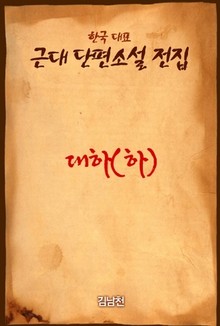 한국 대표
근대 단편소설 전집
대하(하)
김남천